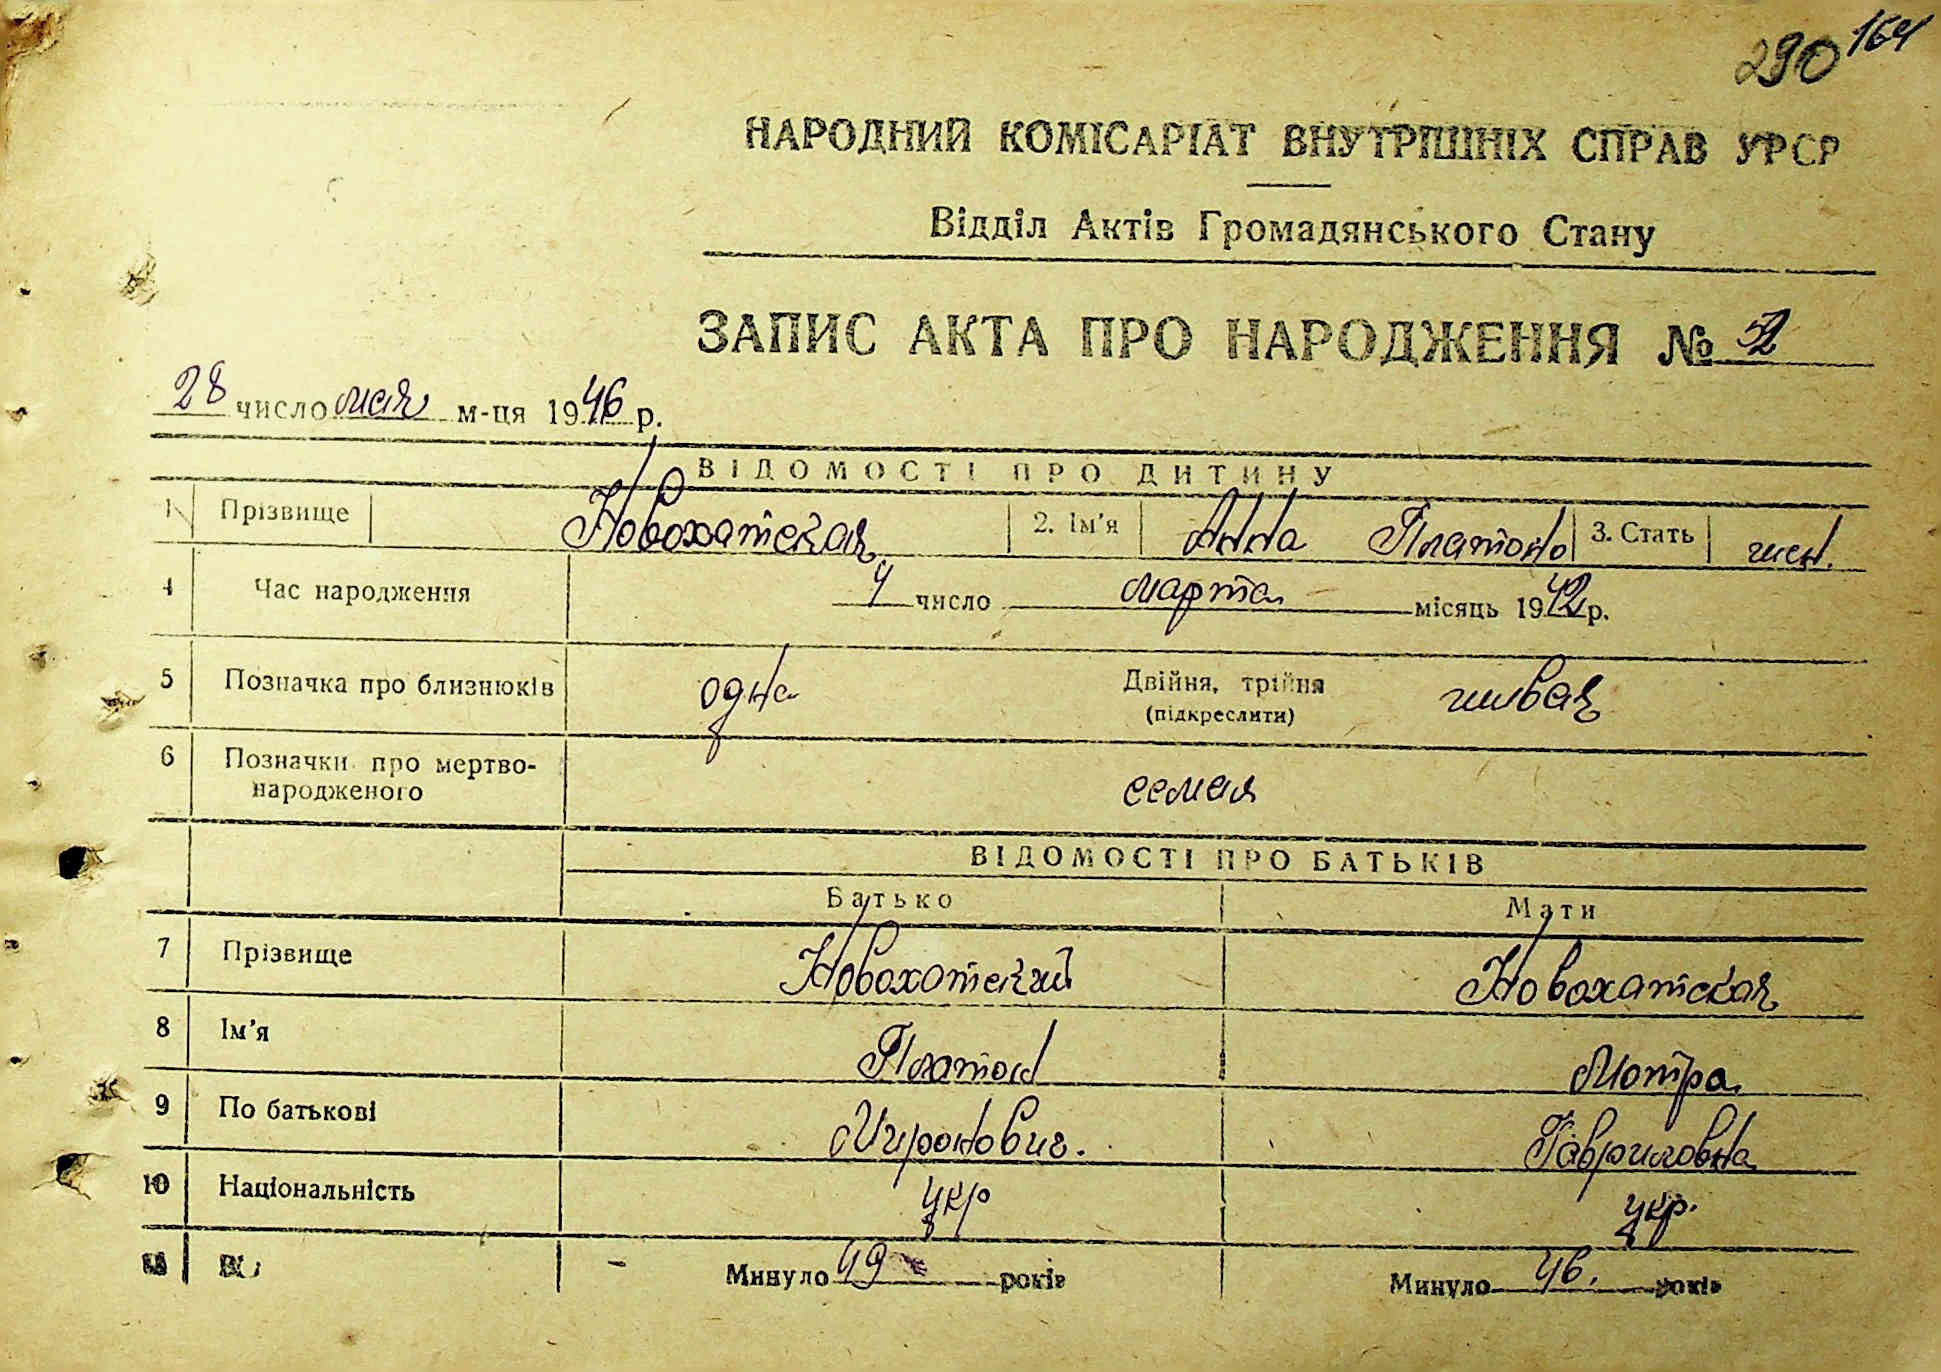 290 164
НАРОДНИЙ КОМІСАРІАТ ВНУТРІШНІХ СПРАВ УРСР
Відділ Актів Громадянського Стану
ЗАПИС АКТА ПРО НАРОДЖЕННЯ № 52
28 число мая м-ця 1946 р.
ВІДОМОСТІ ПРО ДИТИНУ
1 Прізвище Новохатская 2. Ім'я Анна Платоно 3. Стать жен.
4 Час народження 4 число марта місяць 1942 р.
5 Позначка про близнюків одна Двійня, трійня живая
(підкреслити)
6 Позначки про мертво-
народженого семая
ВІДОМОСТІ ПРО БАТЬКІВ
Батько Мати
7 Прізвище Новохотский Новохатская
8 Ім'я Платон Мотра
9 По батькові Миронович. Гавриловна
10 Національність укр укр.
Минуло 49 років Минуло 46. років